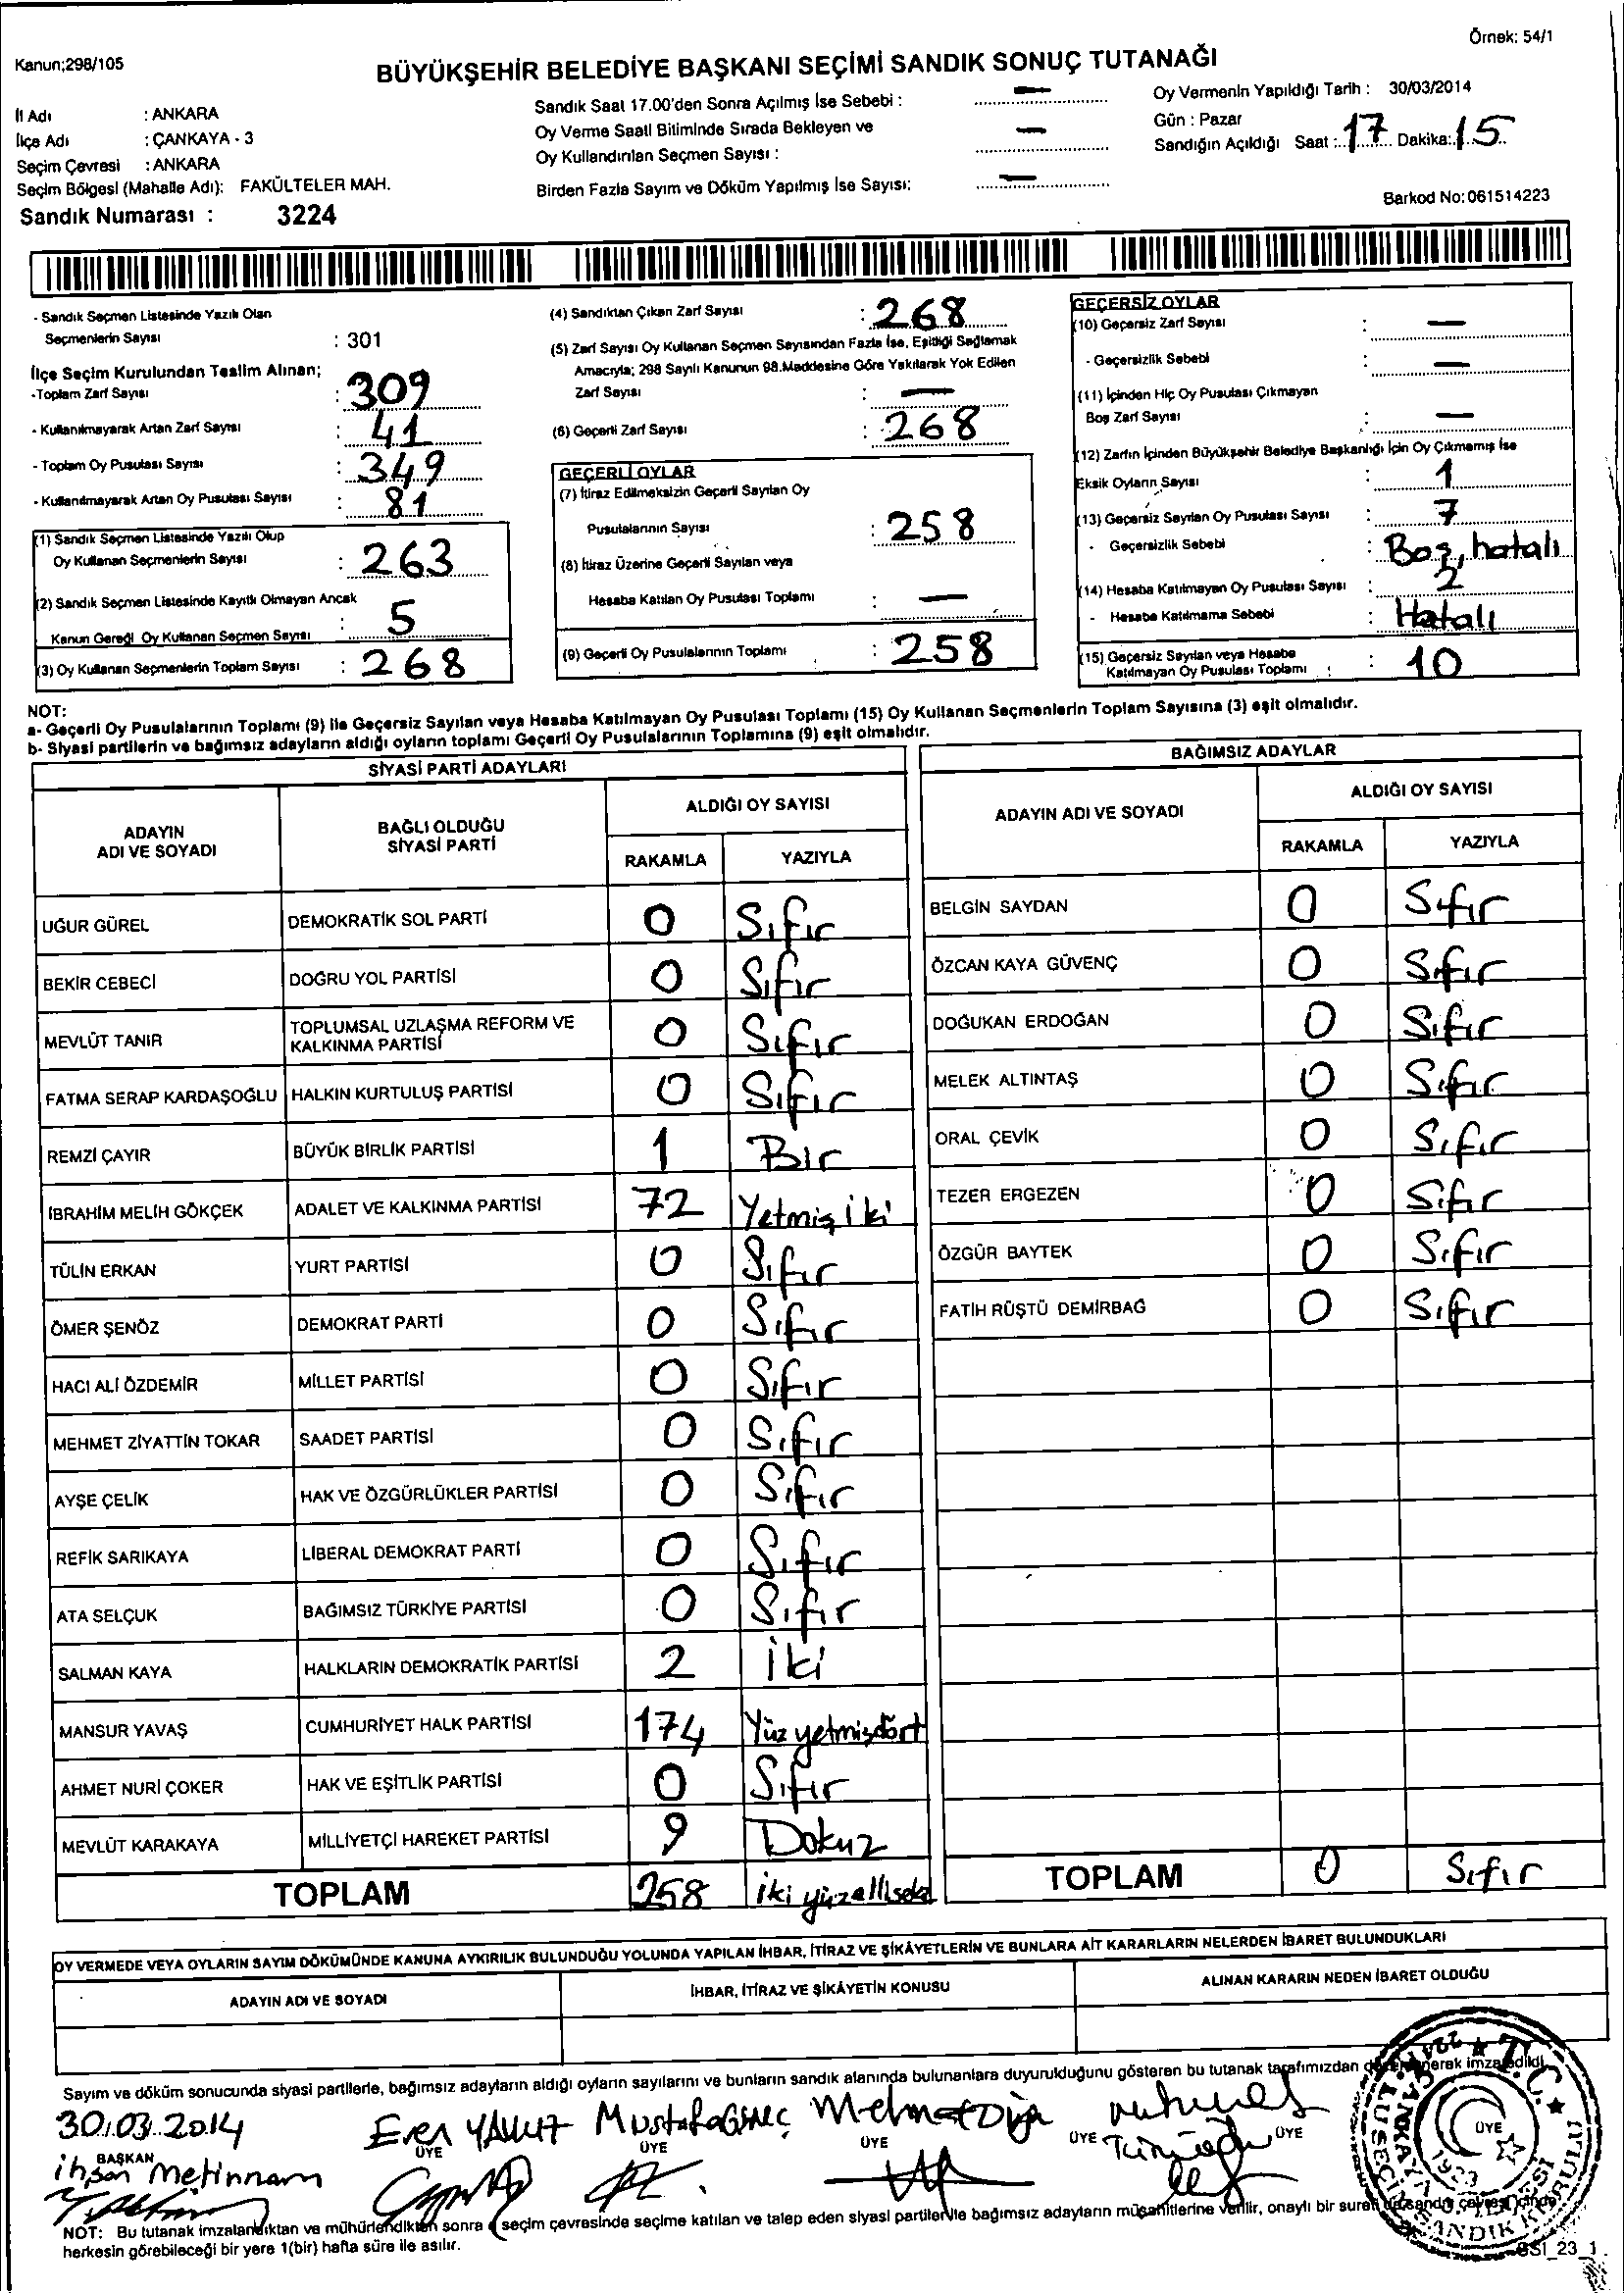 Örnek: 54/1
Kanun;298/105
BÜYÜKŞEHİR BELEDİYE BAŞKANI SEÇİMİ SANDIK SONUÇ TUTANAĞI
İl Adı : ANKARA
İlçe Adı : ÇANKAYA - 3
Seçim Çevresi : ANKARA
Seçim Bölgesi (Mahalle Adı): FAKÜLTELER MAH.
Sandık Numarası : 3224
Sandık Saat 17.00'den Sonra Açılmış İse Sebebi : —
Oy Verme Saati Bitiminde Sırada Bekleyen ve
Oy Kullandırılan Seçmen Sayısı : —
Birden Fazla Sayım ve Döküm Yapılmış İse Sayısı: —
Oy Vermenin Yapıldığı Tarih : 30/03/2014
Gün : Pazar
Sandığın Açıldığı Saat : 17 Dakika: 15
Barkod No: 061514223
- Sandık Seçmen Listesinde Yazılı Olan
Seçmenlerin Sayısı : 301
İlçe Seçim Kurulundan Teslim Alınan;
-Toplam Zarf Sayısı : 309
- Kullanılmayarak Artan Zarf Sayısı : 41
- Toplam Oy Pusulası Sayısı : 349
- Kullanılmayarak Artan Oy Pusulası Sayısı : 81
(1) Sandık Seçmen Listesinde Yazılı Olup
Oy Kullanan Seçmenlerin Sayısı : 263
(2) Sandık Seçmen Listesinde Kayıtlı Olmayan Ancak
Kanun Gereği Oy Kullanan Seçmen Sayısı : 5
(3) Oy Kullanan Seçmenlerin Toplam Sayısı : 268
(4) Sandıktan Çıkan Zarf Sayısı : 268
(5) Zarf Sayısı Oy Kullanan Seçmen Sayısından Fazla İse, Eşitliği Sağlamak
Amacıyla; 298 Sayılı Kanunun 98.Maddesine Göre Yakılarak Yok Edilen
Zarf Sayısı : —
(6) Geçerli Zarf Sayısı : 268
GEÇERLİ OYLAR
(7) İtiraz Edilmeksizin Geçerli Sayılan Oy
Pusulalarının Sayısı : 258
(8) İtiraz Üzerine Geçerli Sayılan veya
Hesaba Katılan Oy Pusulası Toplamı : —
(9) Geçerli Oy Pusulalarının Toplamı : 258
GEÇERSİZ OYLAR
(10) Geçersiz Zarf Sayısı : —
- Geçersizlik Sebebi : —
(11) İçinden Hiç Oy Pusulası Çıkmayan
Boş Zarf Sayısı : —
(12) Zarfın İçinden Büyükşehir Belediye Başkanlığı İçin Oy Çıkmamış İse
Eksik Oyların Sayısı : 1
(13) Geçersiz Sayılan Oy Pusulası Sayısı : 7
- Geçersizlik Sebebi : Boş, hatalı
(14) Hesaba Katılmayan Oy Pusulası Sayısı : 2
- Hesaba Katılmama Sebebi : Hatalı
(15) Geçersiz Sayılan veya Hesaba
Katılmayan Oy Pusulası Toplamı : 10
NOT:
a- Geçerli Oy Pusulalarının Toplamı (9) ile Geçersiz Sayılan veya Hesaba Katılmayan Oy Pusulası Toplamı (15) Oy Kullanan Seçmenlerin Toplam Sayısına (3) eşit olmalıdır.
b- Siyasi partilerin ve bağımsız adayların aldığı oyların toplamı Geçerli Oy Pusulalarının Toplamına (9) eşit olmalıdır.
SİYASİ PARTİ ADAYLARI
ADAYIN ADI VE SOYADI BAĞLI OLDUĞU SİYASİ PARTİ ALDIĞI OY SAYISI
RAKAMLA YAZIYLA
UĞUR GÜREL DEMOKRATİK SOL PARTİ 0 Sıfır
BEKİR CEBECİ DOĞRU YOL PARTİSİ 0 Sıfır
MEVLÜT TANIR TOPLUMSAL UZLAŞMA REFORM VE KALKINMA PARTİSİ 0 Sıfır
FATMA SERAP KARDAŞOĞLU HALKIN KURTULUŞ PARTİSİ 0 Sıfır
REMZİ ÇAYIR BÜYÜK BİRLİK PARTİSİ 1 Bir
İBRAHİM MELİH GÖKÇEK ADALET VE KALKINMA PARTİSİ 72 Yetmiş iki
TÜLİN ERKAN YURT PARTİSİ 0 Sıfır
ÖMER ŞENÖZ DEMOKRAT PARTİ 0 Sıfır
HACI ALİ ÖZDEMİR MİLLET PARTİSİ 0 Sıfır
MEHMET ZİYATTİN TOKAR SAADET PARTİSİ 0 Sıfır
AYŞE ÇELİK HAK VE ÖZGÜRLÜKLER PARTİSİ 0 Sıfır
REFİK SARIKAYA LİBERAL DEMOKRAT PARTİ 0 Sıfır
ATA SELÇUK BAĞIMSIZ TÜRKİYE PARTİSİ 0 Sıfır
SALMAN KAYA HALKLARIN DEMOKRATİK PARTİSİ 2 İki
MANSUR YAVAŞ CUMHURİYET HALK PARTİSİ 174 Yüz yetmişdört
AHMET NURİ ÇOKER HAK VE EŞİTLİK PARTİSİ 0 Sıfır
MEVLÜT KARAKAYA MİLLİYETÇİ HAREKET PARTİSİ 9 Dokuz
TOPLAM 258 iki yüzelli
BAĞIMSIZ ADAYLAR
ADAYIN ADI VE SOYADI ALDIĞI OY SAYISI
RAKAMLA YAZIYLA
BELGİN SAYDAN 0 Sıfır
ÖZCAN KAYA GÜVENÇ 0 Sıfır
DOĞUKAN ERDOĞAN 0 Sıfır
MELEK ALTINTAŞ 0 Sıfır
ORAL ÇEVİK 0 Sıfır
TEZER ERGEZEN 0 Sıfır
ÖZGÜR BAYTEK 0 Sıfır
FATİH RÜŞTÜ DEMİRBAĞ 0 Sıfır
TOPLAM 0 Sıfır
OY VERMEDE VEYA OYLARIN SAYIM DÖKÜMÜNDE KANUNA AYKIRILIK BULUNDUĞU YOLUNDA YAPILAN İHBAR, İTİRAZ VE ŞİKÂYETLERİN VE BUNLARA AİT KARARLARIN NELERDEN İBARET BULUNDUKLARI
ADAYIN ADI VE SOYADI İHBAR, İTİRAZ VE ŞİKÂYETİN KONUSU ALINAN KARARIN NEDEN İBARET OLDUĞU
Sayım ve döküm sonucunda siyasi partilerle, bağımsız adayların aldığı oyların sayılarını ve bunların sandık alanında bulunanlara duyurulduğunu gösteren bu tutanak tarafımızdan
30.03.2014
BAŞKAN ÜYE ÜYE ÜYE ÜYE ÜYE ÜYE
T.C.
1923
NOT: Bu tutanak imzalandıktan ve mühürlendikten sonra seçim çevresinde seçime katılan ve talep eden siyasi partilerle bağımsız adayların müşahitlerine verilir, onaylı bir sureti
herkesin görebileceği bir yere 1(bir) hafta süre ile asılır.
SSI_23_1